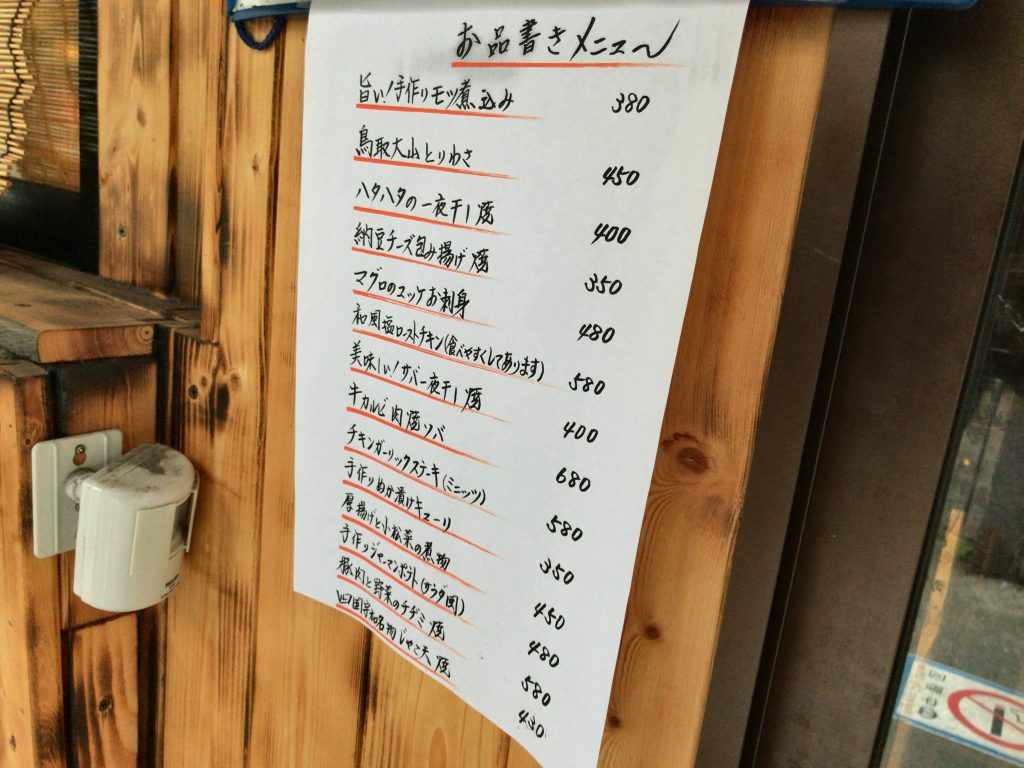 お品書きメニュー
旨い!手作りモツ煮込み 380
鳥取大山とりわさ 450
ハタハタの一夜干し焼 400
納豆チーズ包み揚げ焼 350
マグロのユッケお刺身 480
和風塩ローストチキン(食べやすくしてあります) 580
美味しい!サバ一夜干し焼 400
牛カルビ肉焼ソバ 680
チキンガーリックステーキ(ミニッツ) 580
手作りぬか漬けキューリ 350
厚揚げと小松菜の煮物 450
手作りジャーマンポテト(サラダ風) 480
豚肉と野菜のチヂミ焼 580
四国宇和名物じゃこ天焼 430